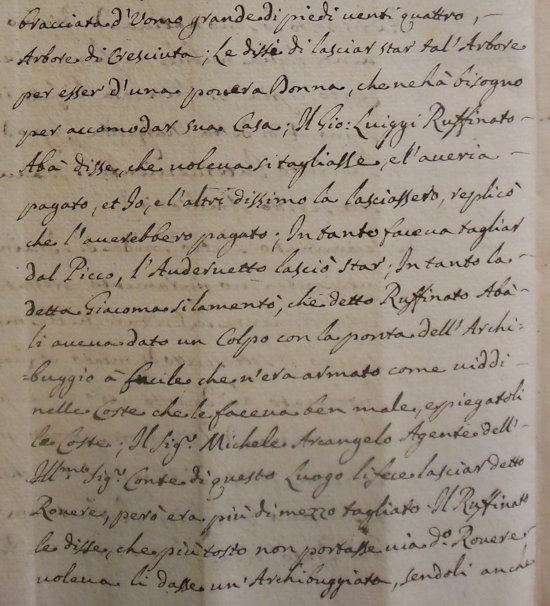 bracciata d'Uomo grande di piedi venti quattro,
Arbore di Cresciuta; Le disse di lasciar star tal' Arbore
per esser d'una povera Donna, che ne hà bisogno
per accomodar sua Casa; Il Gio: Luiggi Ruffinato
Abà disse, che voleva si tagliasse, e l'averia
pagato, et Io, e l'altri dissimo la lasciassero, replicò
che l'averebbero pagato; In tanto faceva tagliar
dal Picco, l'Audervetto lasciò star; In tanto la
detta Giacoma si lamentò, che detto Ruffinato Abà
li aveva dato un Colpo con la ponta dell' Archi=
=buggio à fucile che n'era armato come viddi
nelle Coste che le faceva ben male, e spiegatoli
le Coste; Il Sig.r Michele Arcangelo Agente dell'
Ill.mo Sig.r Conte di questo Luogo li fece lasciar detto
Rovere, però era più di mezzo tagliato. Il Ruffinato
le disse, che più tosto non portasse via d.o Rovere
voleva li dasse un' Archibuggiata, sendoli anche